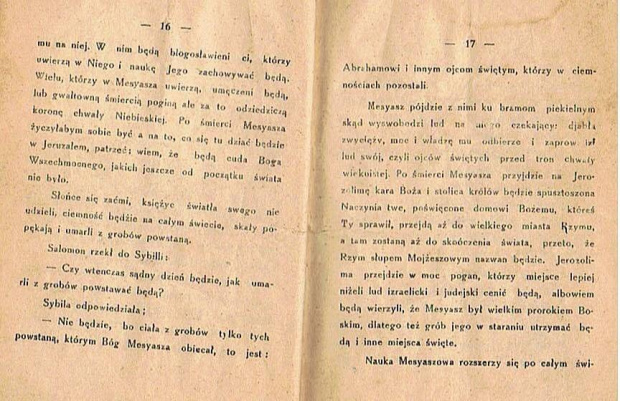 — 16 —
mu na niej. W nim będą błogosławieni ci, którzy
uwierzą w Niego i naukę Jego zachowywać będą.
Wielu, którzy w Mesyasza uwierzą, umęczeni będą,
lub gwałtowną śmiercią poginą ale za to odziedziczą
koronę chwały Niebieskiej. Po śmierci Mesyasza
życzyłabym sobie być a na to, co się tu dziać będzie
w Jeruzalem, patrzeć; wiem, że będą cuda Boga
Wszechmocnego, jakich jeszcze od początku świata
nie było.
Słońce się zaćmi, księżyc światła swego nie
udzieli, ciemność będzie na całym świecie, skały po-
pękają i umarli z grobów powstaną.
Salomon rzekł do Sybilli:
— Czy wtenczas sądny dzień będzie, jak uma-
rli z grobów powstawać będą?
Sybila odpowiedziała;
— Nie będzie, bo ciała z grobów tylko tych
powstaną, którym Bóg Mesyasza obiecał, to jest:
— 17 —
Abrahamowi i innym ojcom świętym, którzy w ciem-
nościach pozostali.
Mesyasz pójdzie z nimi ku bramom piekielnym
skąd wyswobodzi lud na niego czekający: djabła
zwycięży, moc i władzę mu odbierze i zaprow
lud swój, czyli ojców świętych przed tron chwały
wiekuistej. Po śmierci Mesyasza przyjdzie na Jero-
zolimę kara Boża i stolica królów będzie spustoszona
Naczynia twe, poświęcone domowi Bożemu, któreś
Ty sprawił, przejdą aż do wielkiego miasta Rzymu,
a tam zostaną aż do skończenia świata, przeto, że
Rzym słupem Mojżeszowym nazwan będzie. Jerozoli-
ma przejdzie w moc pogan, którzy miejsce lepiej
niżeli lud izraelicki i judejski cenić będą, albowiem
będą wierzyli, że Mesyasz był wielkim prorokiem Bo-
skim, dlatego też grób jego w staraniu utrzymać bę-
dą i inne miejsca święte.
Nauka Mesyaszowa rozszerzy się po całym świ-